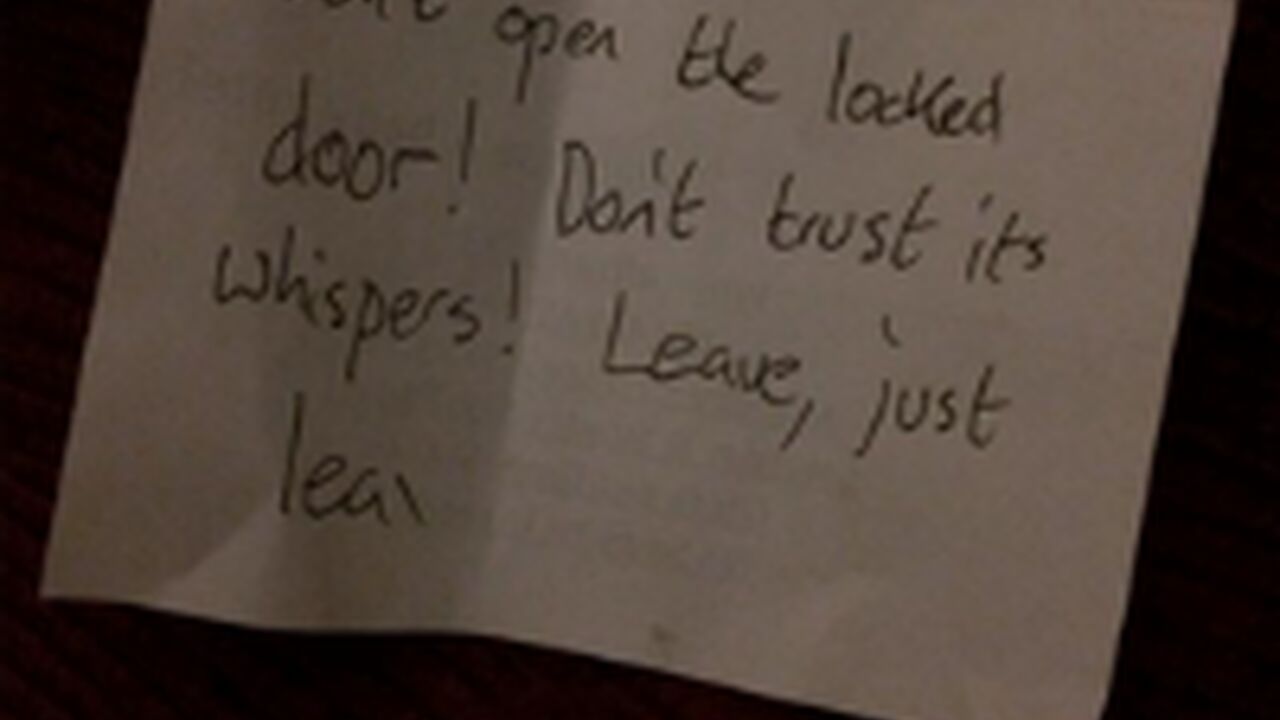 open the locked
door! Don't trust its
whispers! Leave, just
leav